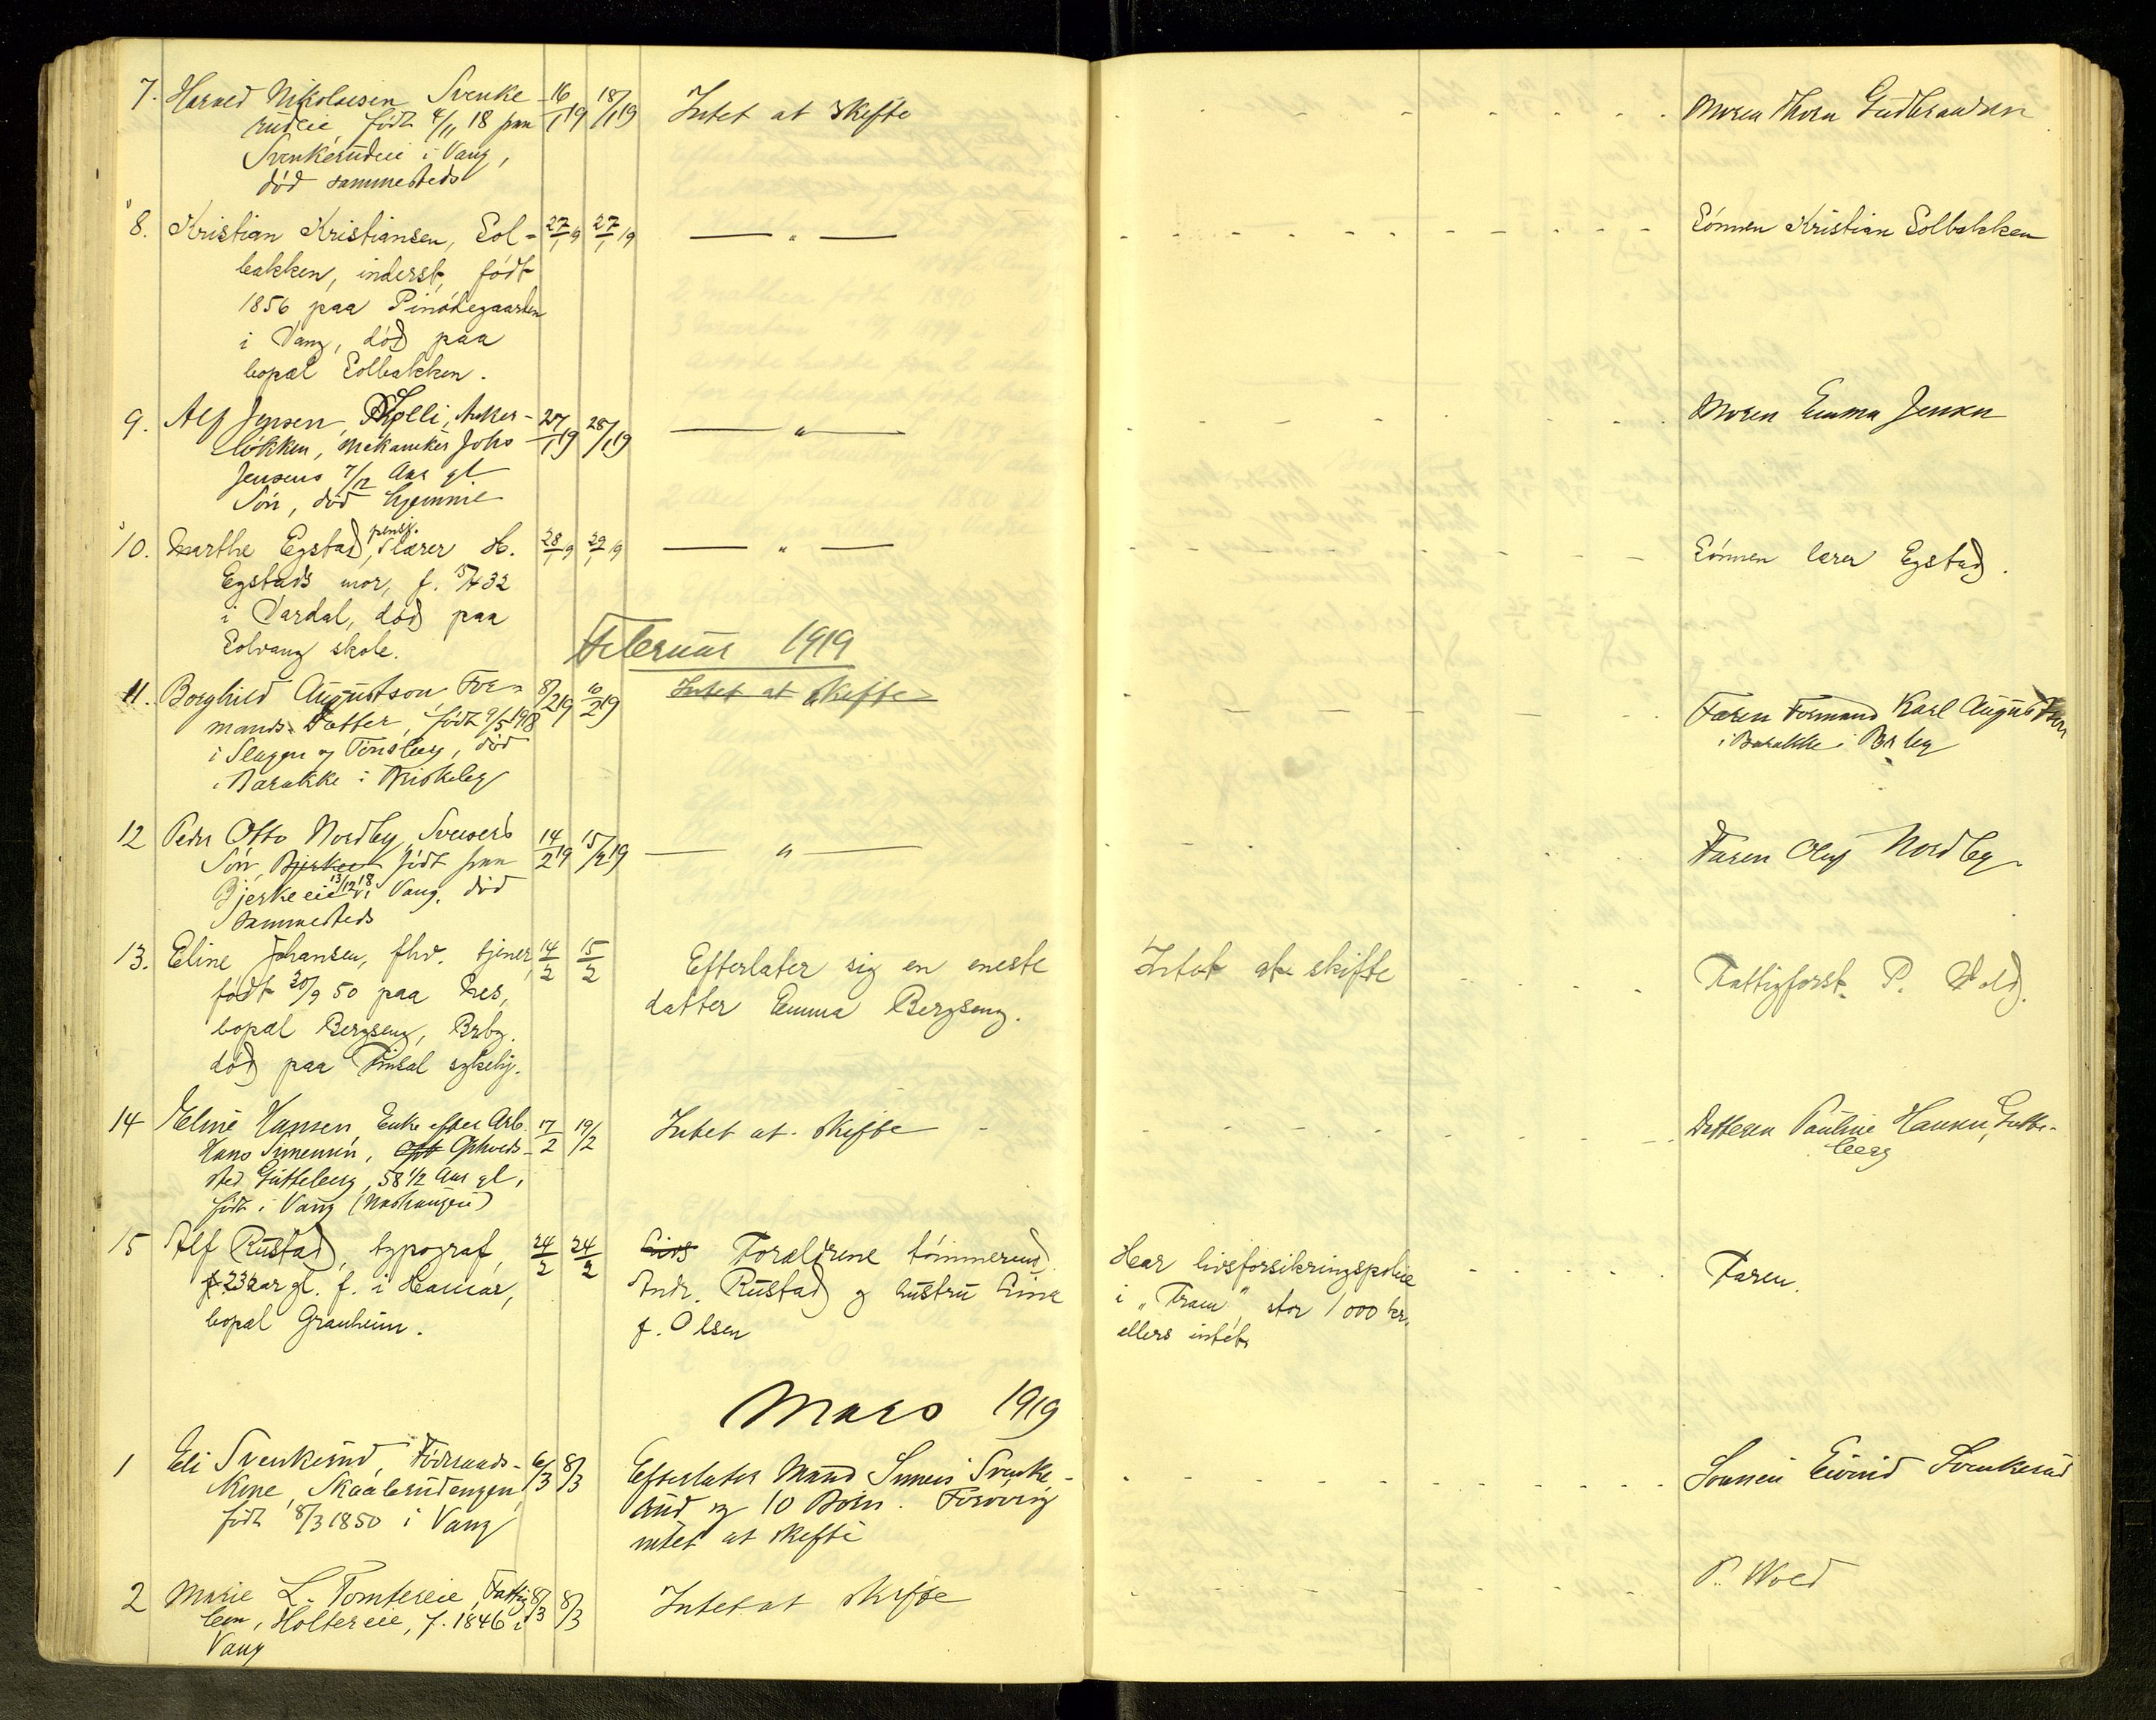 7. Harald Nikolaisen Svenke- 16/1 19 18/1 19 Intet at skifte - - - Moren Thora Gudbrandsen
rudeie, født 4/11 18 paa
Svenkerudeie i Vang,
død sammesteds
8. Kristian Kristiansen, Sol- 27/1 19 27/1 19 — „ — - - - Sønnen Kristian Solbakken
bakken, inderst, født
1856 paa Pinólegaarden
i Vang, død paa
bopæl Solbakken.
9. Alf Jensen, Anker- 27/1 19 28/1 19 — „ — - - - Moren Emma Jensen
løkken, Mekaniker Johs
Jensens 7/12 Aar gl
Søn, død hjemme
10. Marthe Egstad, pensj. lærer H. 28/1 19 29/1 19 — „ — - - - Sønnen lærer Egstad.
Egstads mor, f. 15/4 32
i Vardal, død paa
Solvang skole.
Februar 1919
11. Borghild Augustson, For- 8/2 19 10/2 19 Intet at skifte - - - Faren Formand Karl Augustson
mands Datter, født 9/5 1918 i Barakke i Brbg
i Slagen og Tønsberg, død
i Barakke i Briskeby
12 Peder Otto Nordby, Sveisers 14/2 19 15/2 19 — „ — - - - Faren Oluf Nordby
Søn, Bjerkeei født paa
Bjerkeeie 13/12 18 i Vang, død
sammesteds
13. Eline Johansen, fhv. tjener, 14/2 15/2 Efterlater sig en eneste Intet at skifte - - - Fattigforst. P. Wold.
født 20/9 50 paa Nes, datter Emma Bergseng.
bopæl Bergseng, Brbg.
død paa Finsal sykehj.
14 Eline Hansen, Enke efter Arb. 17/2 19/2 Intet at skifte - - - Datteren Pauline Hansen, Gutte-
Hans Simensen, Opholds- berg
sted Gutteberg, 58 1/2 Aar gl,
født i Vang
15 Alf Rustad, typograf, 24/2 24/2 Forældrene tømmermd. Har livsforsikringspolice - - - Faren.
23 aar gl. f. i Hamar, Andr. Rustad og hustru Lina i „Fram" stor 1000 kr.
bopæl Granheim. f. Olsen ellers intet
Mars 1919
1 Eli Svenkerud, Føderaads- 6/3 8/3 Efterlater Mand Simen Svenke- - - - Sønnen Eivind Svenkerud
kone, Skaabrudengen, rud og 10 Børn. Forøvrig
født 8/3 1850 i Vang intet at skifte
2 Marie L. Tomtereie, Fattig- 8/3 8/3 Intet at skifte - - - P. Wold
lem, Holtereie, f. 1846 i
Vang